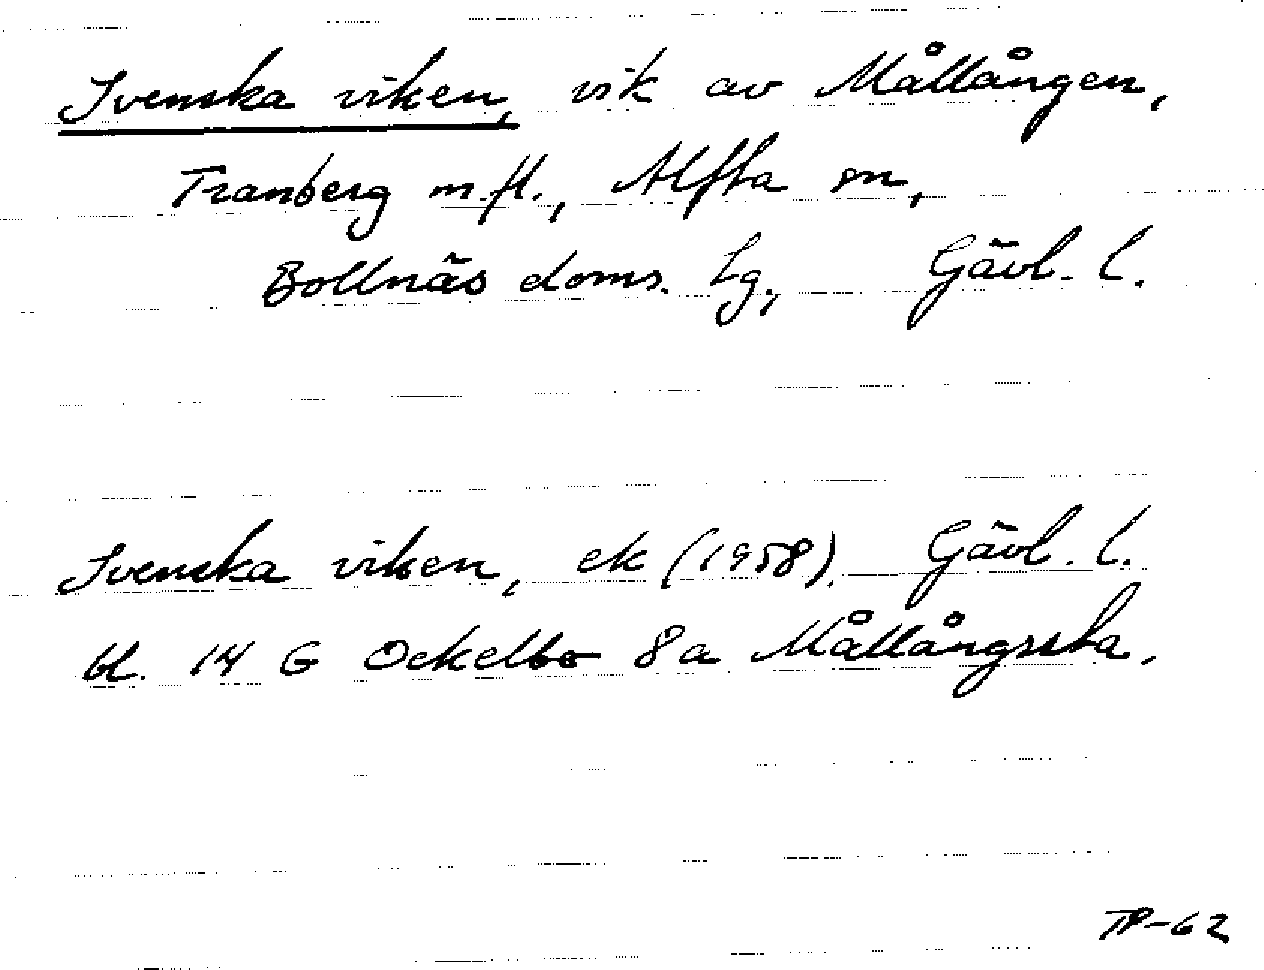 Svenska viken, vik av Mållången,
Tranberg m.fl., Alfta sn,
Bollnäs doms. Lg., Gävl. l.
Svenska viken, ek (1958). Gävl. l.
bl. 14 G Ockelbo 8a Mållångssta.
TP-62